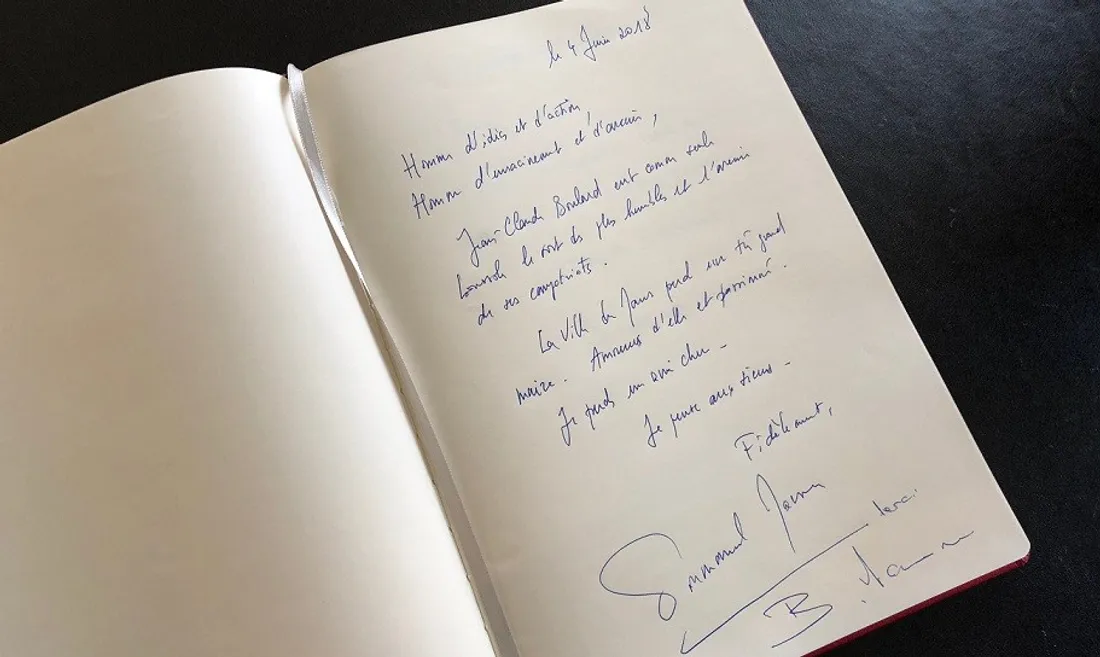 le 4 Juin 2018
Homme d'idées et d'action,
Homme d'enracinement et d'avenir,
Jean-Claude Boulard eut comme seule
boussole le sort des plus humbles et l'avenir
de ses compatriotes.
La Ville du Mans perd un très grand
maire. Amoureux d'elle et passionné.
Je perds un ami cher -
Je pense aux siens -
Fidèlement,
Emmanuel Macron
B. Macron